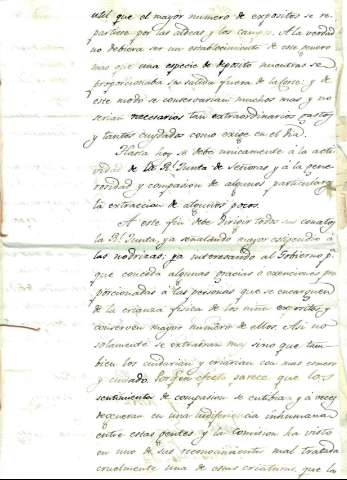 util que el mayor numero de expositos se re-
partiese por las aldeas y los campos. A la verdad
no debiera ser un establecimiento de este genero
mas que una especie de deposito mientras se
proporcionaba su salida fuera de la Corte: y de
este modo se conservarian muchos mas y no
serian necesarios tan extraordinarios gastos
y tantos cuydados como exige en el dia.
Hasta hoy se debe unicamente á la acti-
vidad de la Rl. Junta de Señoras y á la gene-
rosidad y compasion de algunos particulares
la extraccion de algunos pocos.
A este fin debe dirigir todos sus conatos
la Rl. Junta, ya señalando mayor estipendio á
las nodrizas; ya interesando al Gobierno pa.
que conceda algunas gracias o exenciones pro-
porcionadas á las personas que se encarguen
de la crianza fisica de los niños expositos, y
conserven mayor numero de ellos. Asi no
solamente se extraerian muy sino que tam-
bien los cuidarian y criarian con mas esmero
y cuidado. Por fin efecto parece que los
sentimientos de compasion se entibian y á veces
degeneran en una indiferencia inhumana
entre estas gentes y la comision ha visto
en uno de sus reconocimientos mal tratada
cruelmente una de estas criaturas, que la